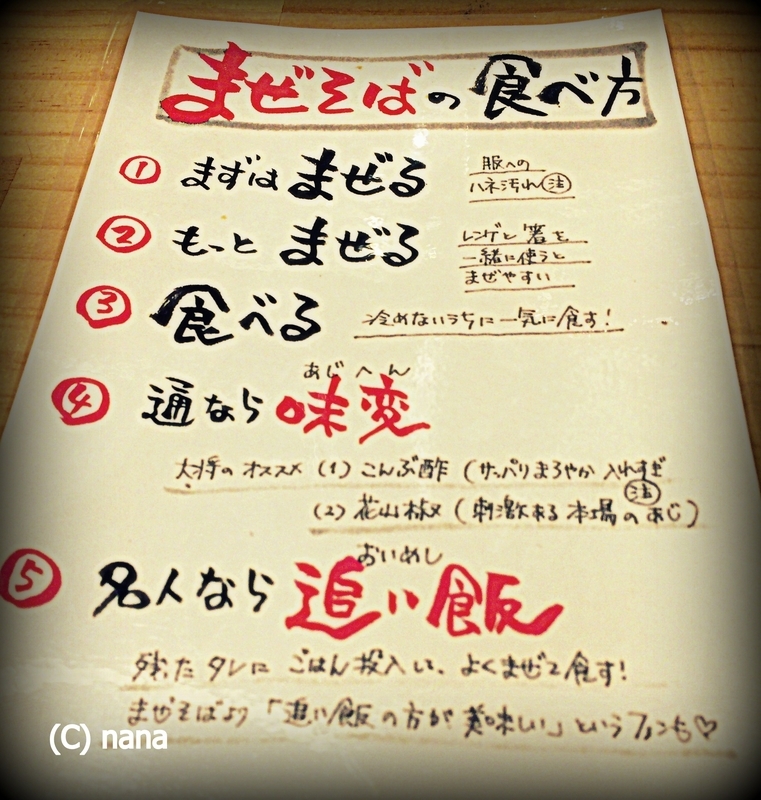 まぜそばの食べ方
① まずは まぜる
服への
ハネ汚れ注
② もっと まぜる
レンゲと箸を
一緒に使うと
まぜやすい
③ 食べる
冷めないうちに一気に食す!
あじへん
④ 通なら 味変
大将のオススメ (1) こんぶ酢 (サッパリまろやか 入れすぎ
注
(2) 花山椒 (刺激ある本場のあじ)
おいめし
⑤ 名人なら 追い飯
残ったタレに ごはん投入して、よくまぜて食す!
まぜそばより「追い飯の方が美味しい」というファンも♡
(C) nana